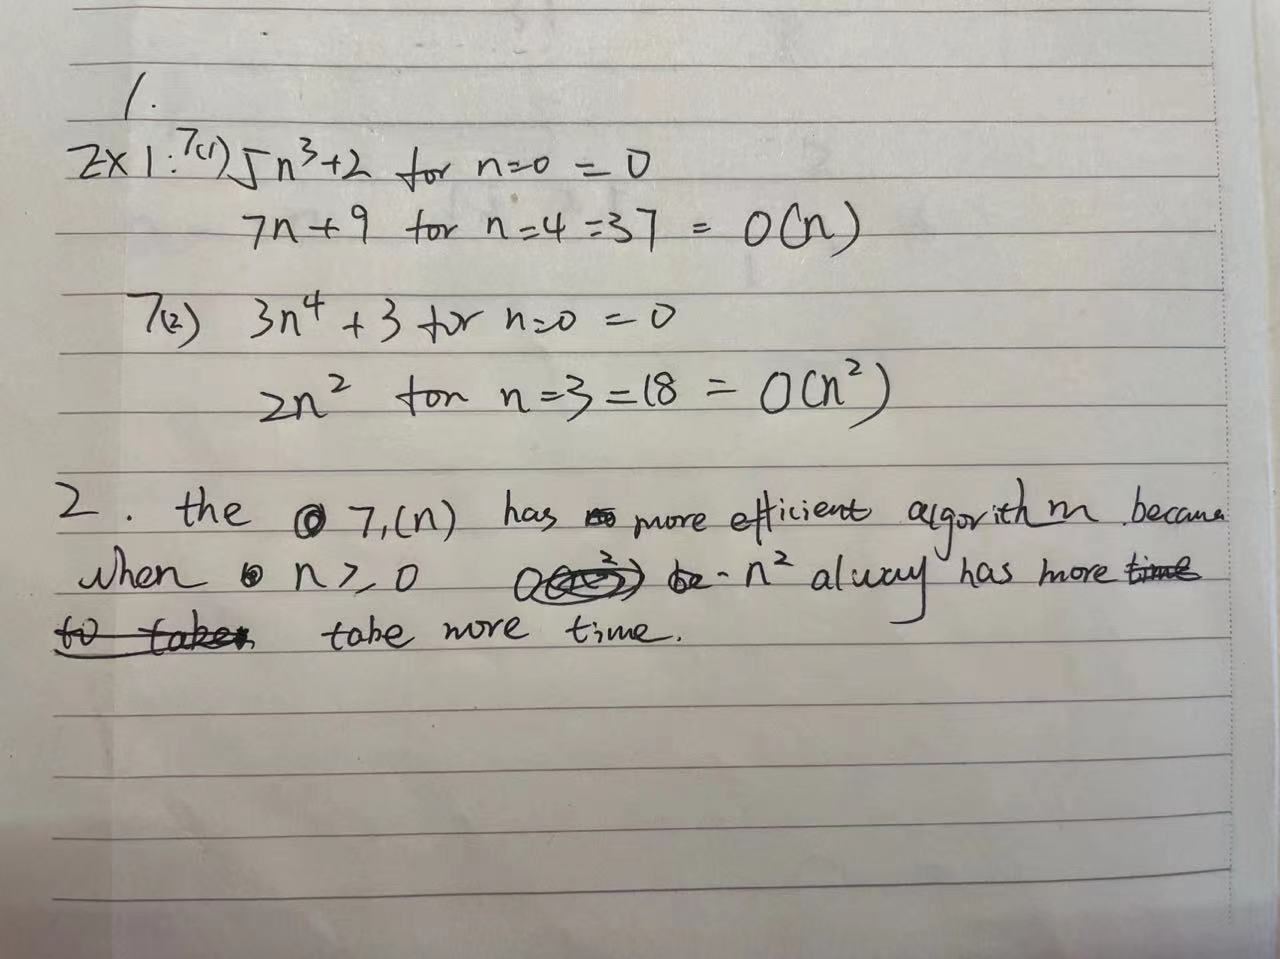 1.
2x1: 7(1) 5n³+2 for n=0 = 0
7n+9 for n=4 =37 = O(n)
7(2) 3n⁴ + 3 for n=0 = 0
2n² for n=3 =18 = O(n²)
2. the 7,(n) has more efficient algorithm because
when n ≥ 0 - n² alway has more
take more time.